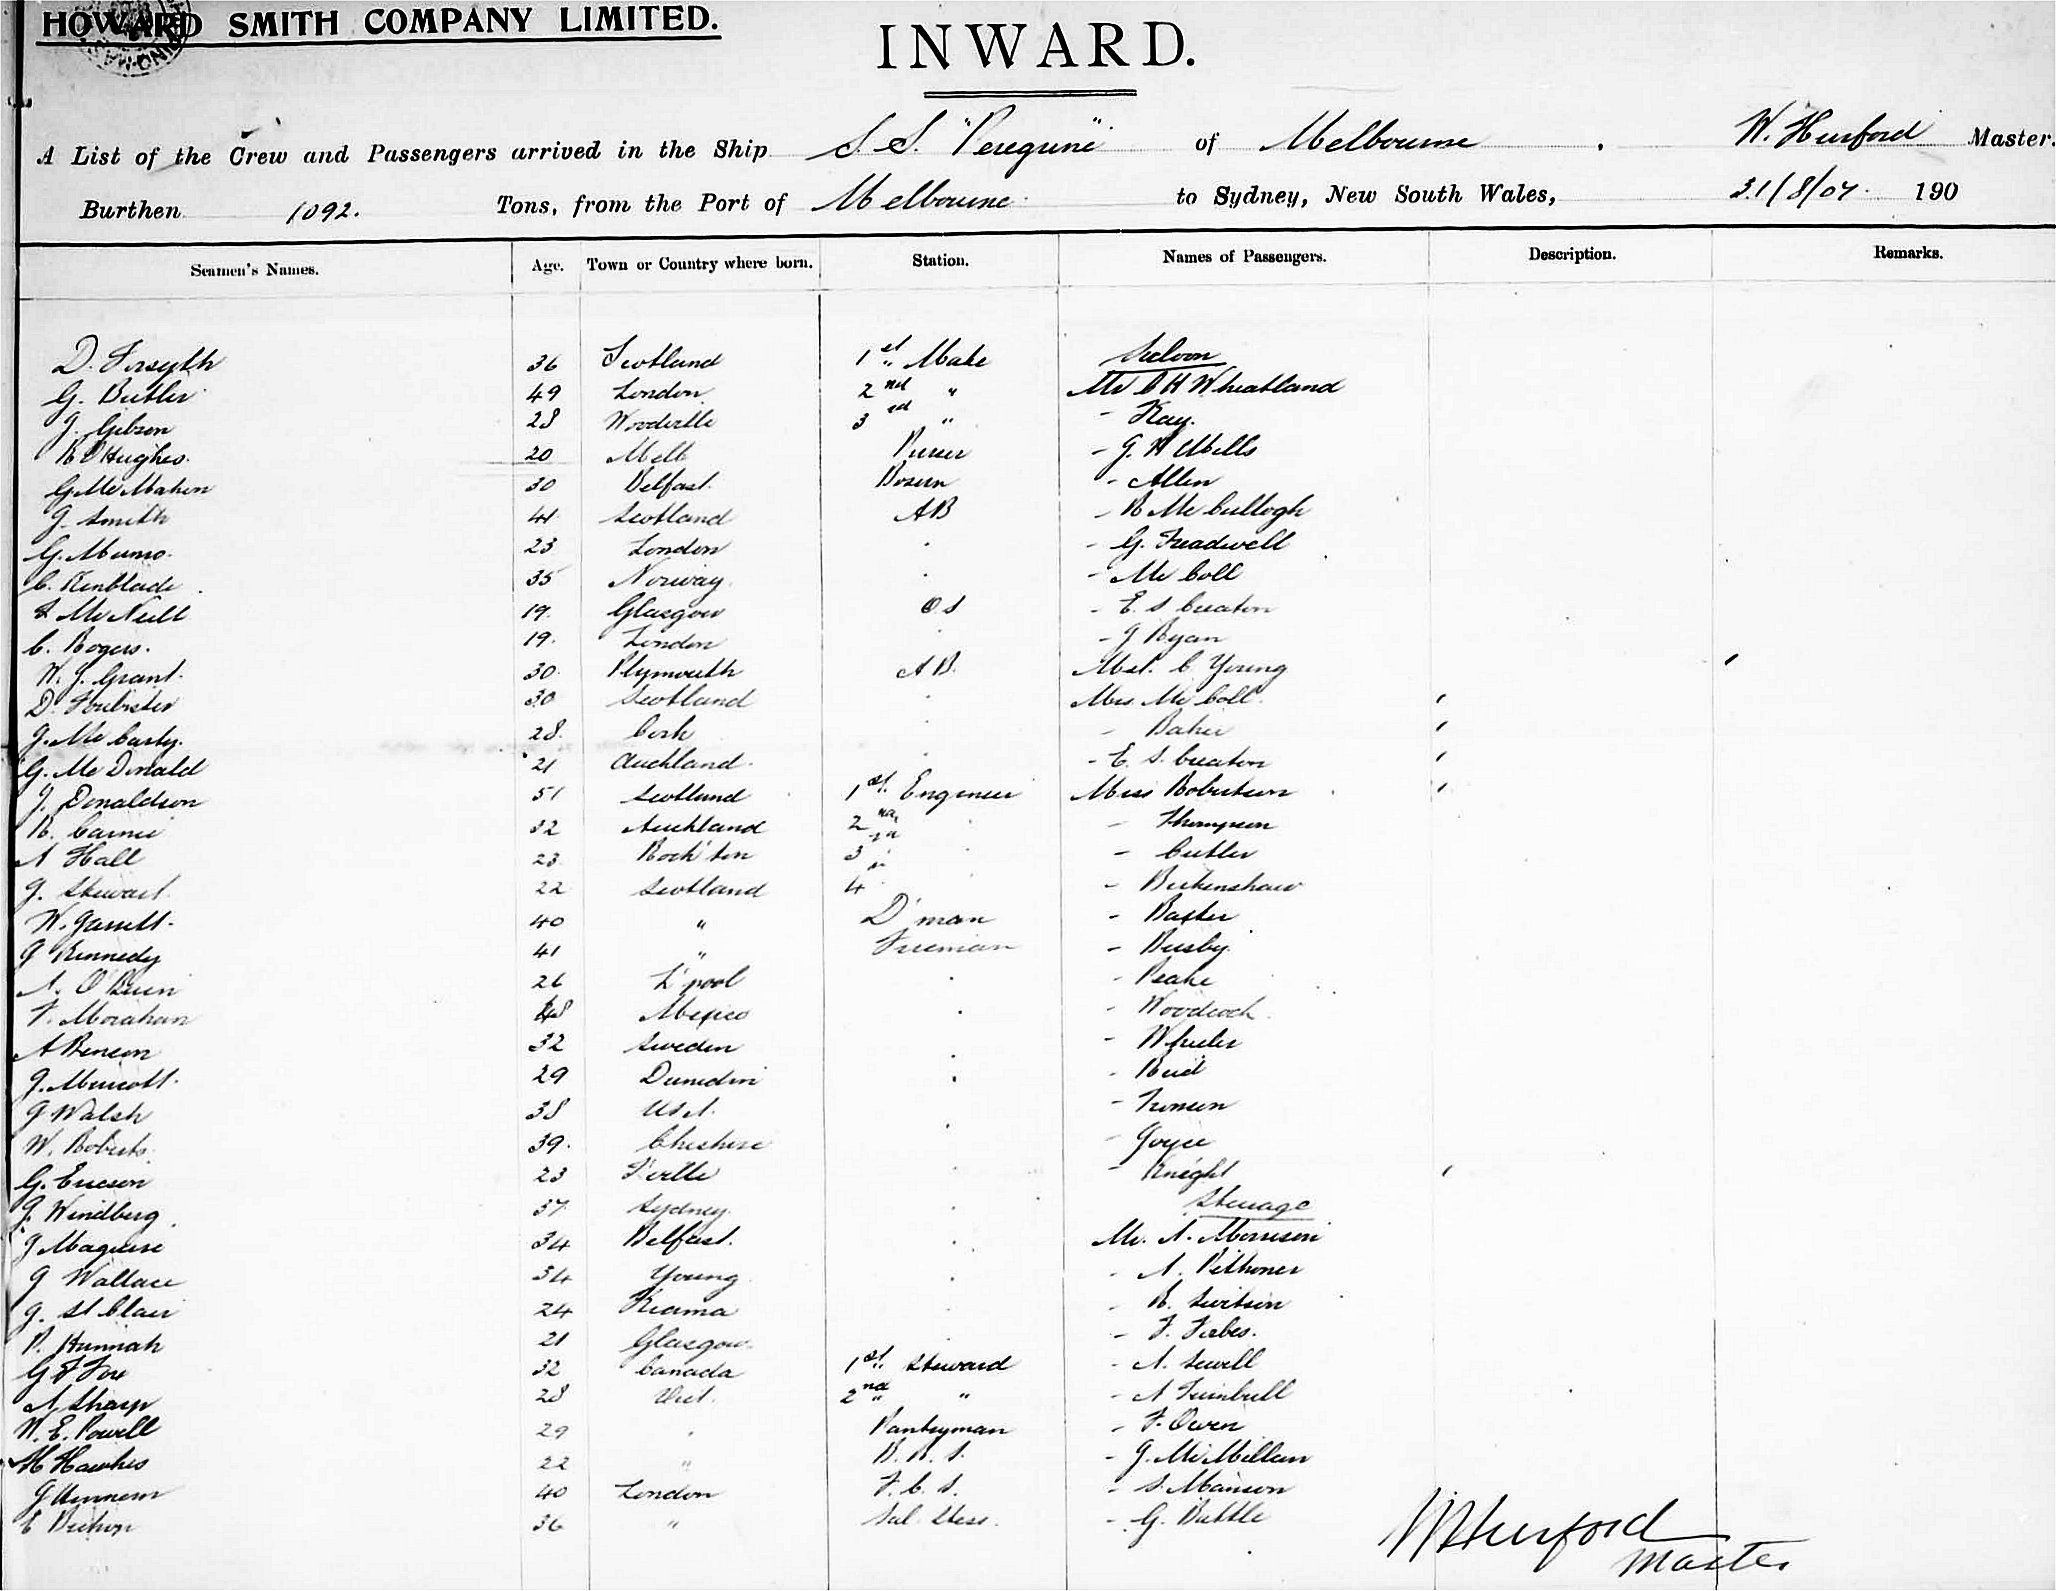 HOWARD SMITH COMPANY LIMITED.
INWARD.
A List of the Crew and Passengers arrived in the Ship S.S. "Peregrine" of Melbourne. W. Hurford Master.
Burthen 1092. Tons, from the Port of Melbourne to Sydney, New South Wales, 31/8/07. 190
Seamen's Names. Age. Town or Country where born. Station. Names of Passengers. Description. Remarks.
D. Forsyth 36 Scotland 1st Mate Saloon
G. Butler 49 London 2nd " Mr C H Wheatland
J. Gibson 28 Woodville 3rd " - Kay.
Hughes. 20 Melb Purser - G. H Mills
G. McMahon 30 Belfast. Bosun - Allen
J. Smith 41 Scotland AB - R McCullogh
G. Munro. 23 London - G. Treadwell
C. 35 Norway. - McColl
McNeill 19. Glasgow OS - E. S Creaton
C. Rogers. 19. London - J Ryan
W. J. Grant. 30. Plymouth AB. Mst. C Young
D. Foubister 30 Scotland Mrs. McColl.
J. McCarty. 28. Cork - Baker
G. McDonald 21 Auckland. - E. S. Creaton
J. Donaldson 51 Scotland 1st. Engineer Miss Robertson
R. Carnie 32 Auckland 2nd - Thompson
A Hall 23. Rock'ton 3 - Cutler
J. Stewart. 22 Scotland 4 - Birkenshaw
W. Garrett. 40 " D'man - Baxter
J Kennedy 41 " Fireman - Busby.
A. O'Brien 26 L'pool - Peake
F. Morahan 48 Mexico - Woodcock.
A Benson 32 Sweden - Wheeler
J. Murcott. 29 Dunedin - Reid
J Walsh 38 USA. - Tronson
W. Roberts. 39. Cheshire - Joyce
G. Ericson 23 T'ville - Knight
J. Windberg. 37. Sydney. Steerage
J Maguire 34 Belfast. Mr. A. Morrison
J Wallace 34 Young - A. Pethoner
J. St Clair 24 Kiama - R.
P. Hannah 21 Glasgow. - F. Forbes.
G F Fox 32 Canada 1st. Steward - A. Sewell
A Sharp 28 Vict. 2nd " - A Turnbull
W. E. Powell 29 Pantryman - F. Owen
H Hawkes 22 " B. R. S. - J. McMillan
J 40 London F. C. S. - S. Manson
E 36 " Sal. Stess. - G. Battle
W Hurford
Master